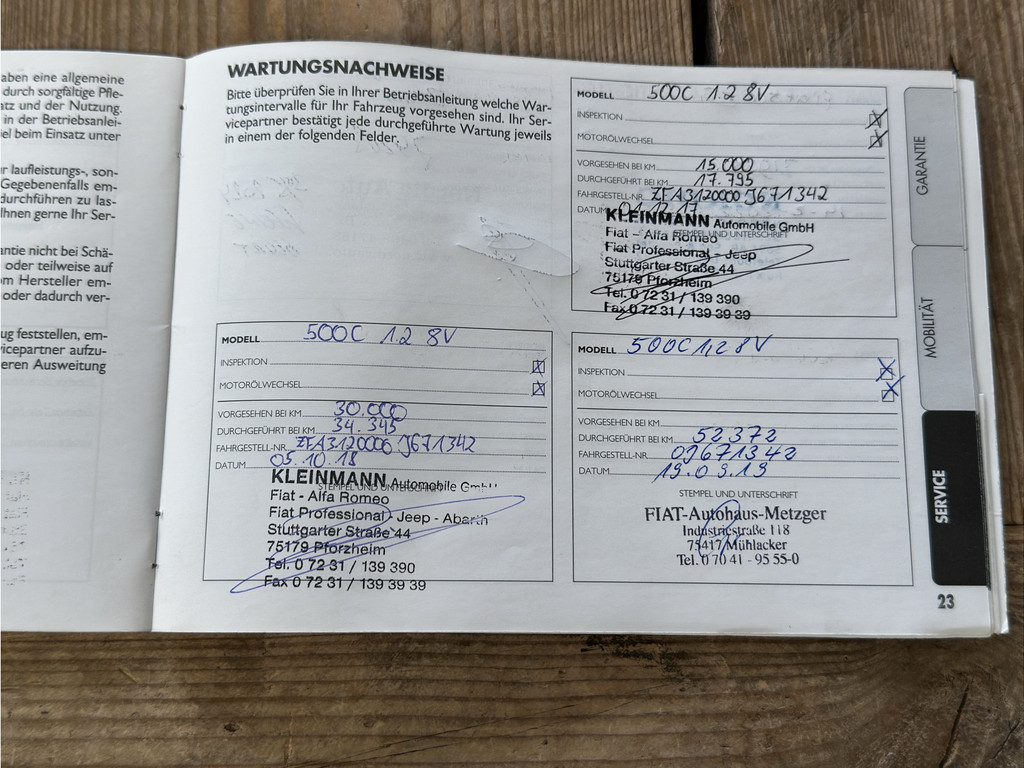 aben eine allgemeine
durch sorgfältige Pfle-
atz und der Nutzung.
in der Betriebsanlei-
iel beim Einsatz unter
r laufleistungs-, son-
Gegebenenfalls em-
durchführen zu las-
Ihnen gerne Ihr Ser-
antie nicht bei Schä-
oder teilweise auf
om Hersteller em-
oder dadurch ver-
ug feststellen, em-
vicepartner aufzu-
eren Ausweitung
WARTUNGSNACHWEISE
Bitte überprüfen Sie in Ihrer Betriebsanleitung welche War-
tungsintervalle für Ihr Fahrzeug vorgesehen sind. Ihr Ser-
vicepartner bestätigt jede durchgeführte Wartung jeweils
in einem der folgenden Felder.
MODELL 500C 1.2 8V
INSPEKTION
MOTORÖLWECHSEL
VORGESEHEN BEI KM 15.000
DURCHGEFÜHRT BEI KM 17.795
FAHRGESTELL-NR. ZFA3120000J671342
DATUM 01.12.17
KLEINMANN Automobile GmbH
STEMPEL UND UNTERSCHRIFT
Fiat - Alfa Romeo
Fiat Professional - Jeep
Stuttgarter Straße 44
75179 Pforzheim
Tel. 0 72 31 / 139 390
Fax 0 72 31 / 139 39 39
MODELL 500C 1.2 8V
INSPEKTION
MOTORÖLWECHSEL
VORGESEHEN BEI KM 30.000
DURCHGEFÜHRT BEI KM 34.345
FAHRGESTELL-NR. ZFA3120000J671342
DATUM 05.10.18
KLEINMANN Automobile GmbH
STEMPEL UND UNTERSCHRIFT
Fiat - Alfa Romeo
Fiat Professional - Jeep - Abarth
Stuttgarter Straße 44
75179 Pforzheim
Tel. 0 72 31 / 139 390
Fax 0 72 31 / 139 39 39
MODELL 500C 1,2 8V
INSPEKTION
MOTORÖLWECHSEL
VORGESEHEN BEI KM
DURCHGEFÜHRT BEI KM 52372
FAHRGESTELL-NR. 0J671342
DATUM 19.09.19
STEMPEL UND UNTERSCHRIFT
FIAT-Autohaus-Metzger
Industriestraße 118
75417 Mühlacker
Tel. 0 70 41 - 95 55-0
GARANTIE
MOBILITÄT
SERVICE
23